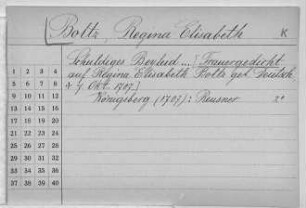 [Boltz, Regina Elisabeth K
Schuldiges Beyleid ... [Trauergedicht
auf Regina Elisabeth Boltz geb. Deutsch.
4 Okt. 1707.]
Königsberg (1707): Reusner 2°
1 2 3 4
5 6 7 8
9 10 11 12
13 14 15 16
17 18 19 20
21 22 23 24
25 26 27 28
29 30 31 32
33 34 35 36
37 38 39 40